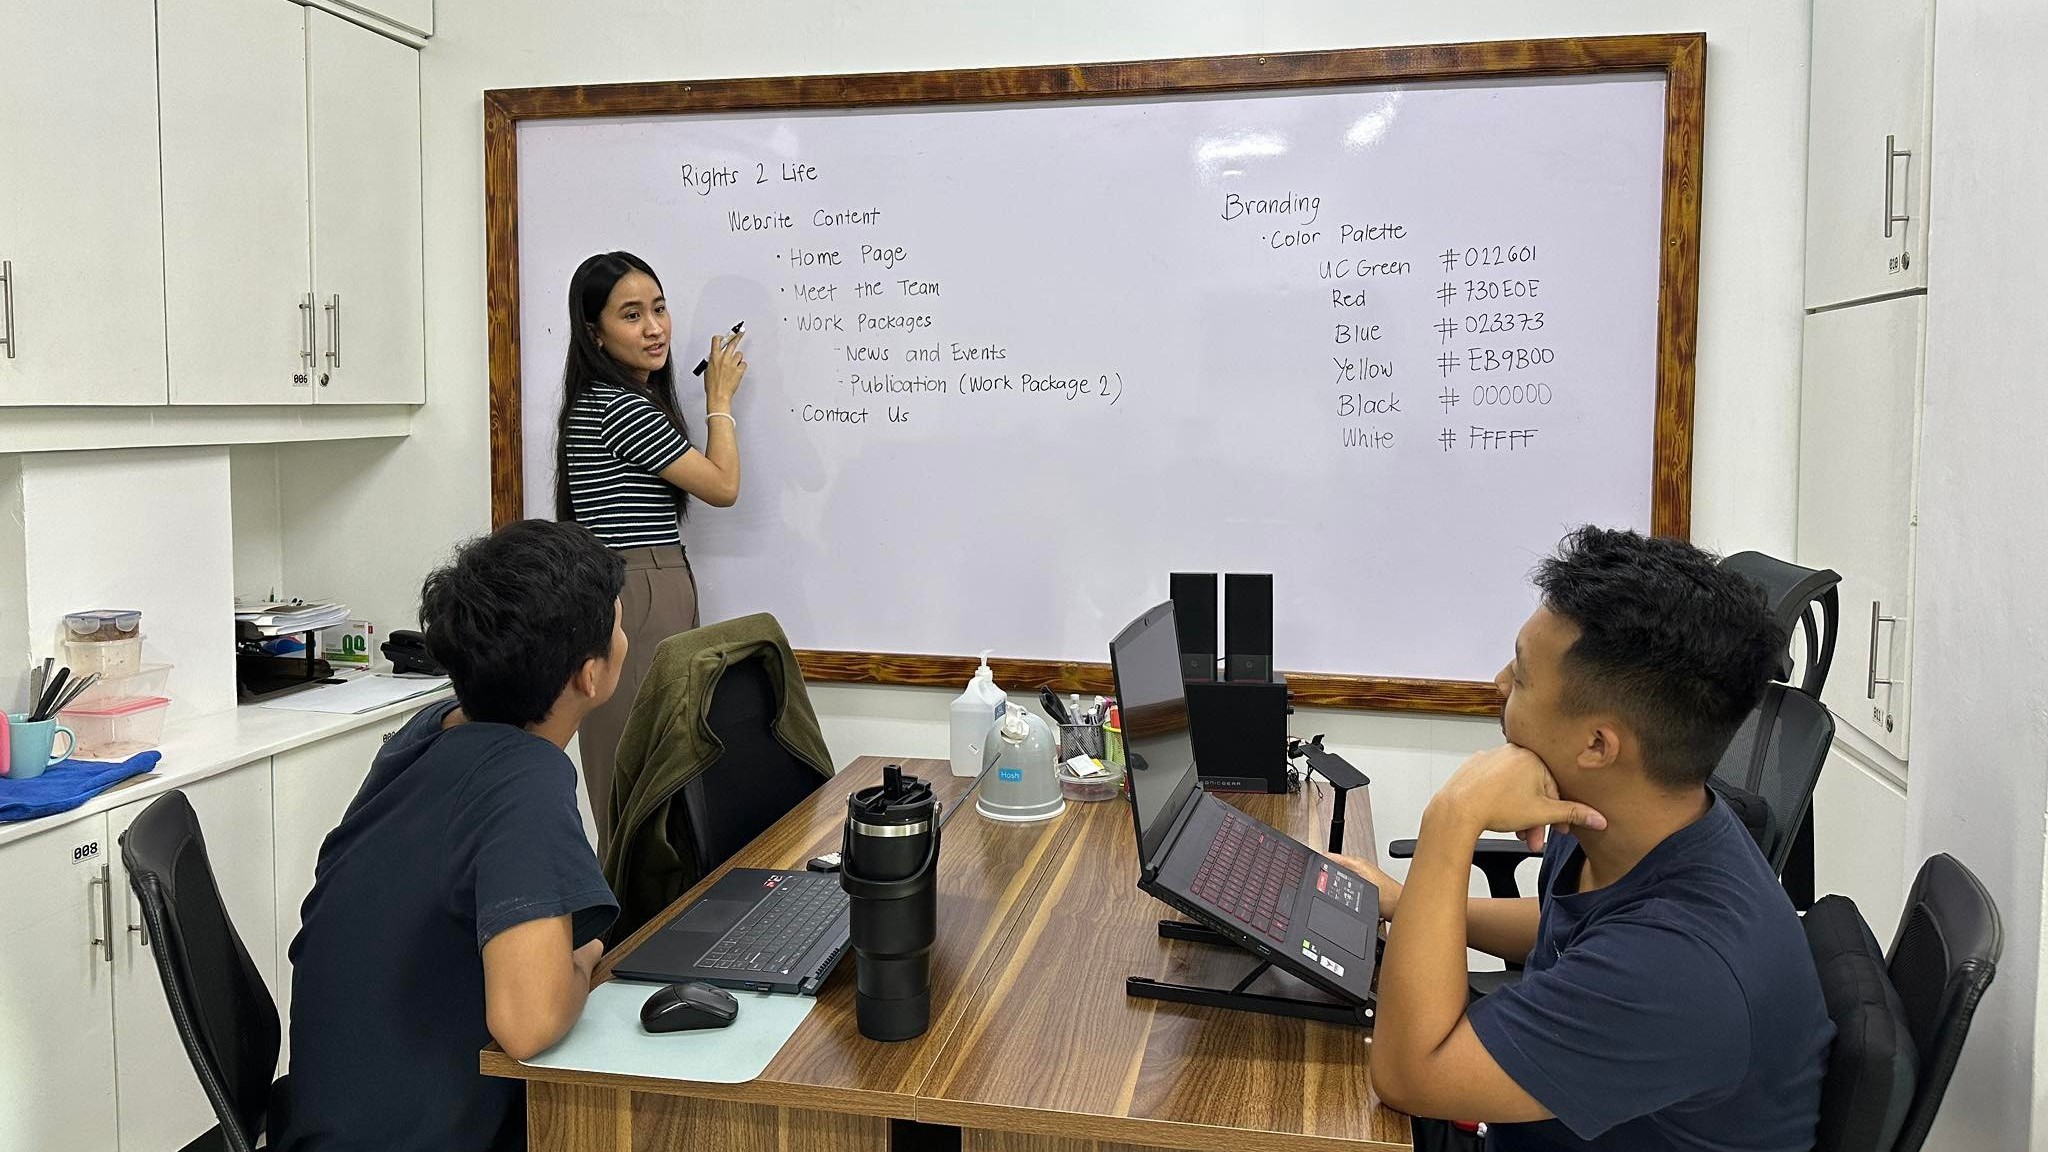 Rights 2 Life
Website Content
· Home Page
· Meet the Team
· Work Packages
- News and Events
- Publication (Work Package 2)
· Contact Us
Branding
· Color Palette
UC Green #022601
Red #730E0E
Blue #023373
Yellow #EB9B00
Black #000000
White #FFFFF
006
008
010
011
Hash
SONICGEAR